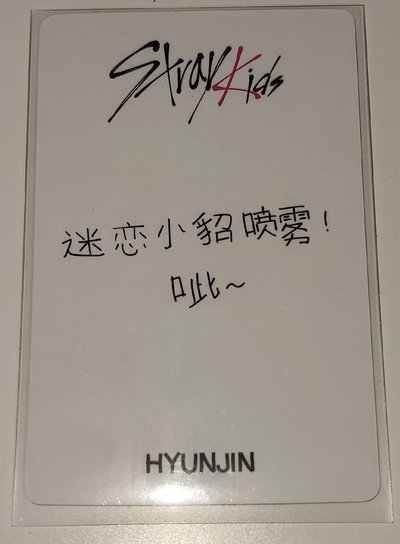 Stray Kids
迷恋小貂喷雾!
呲~
HYUNJIN